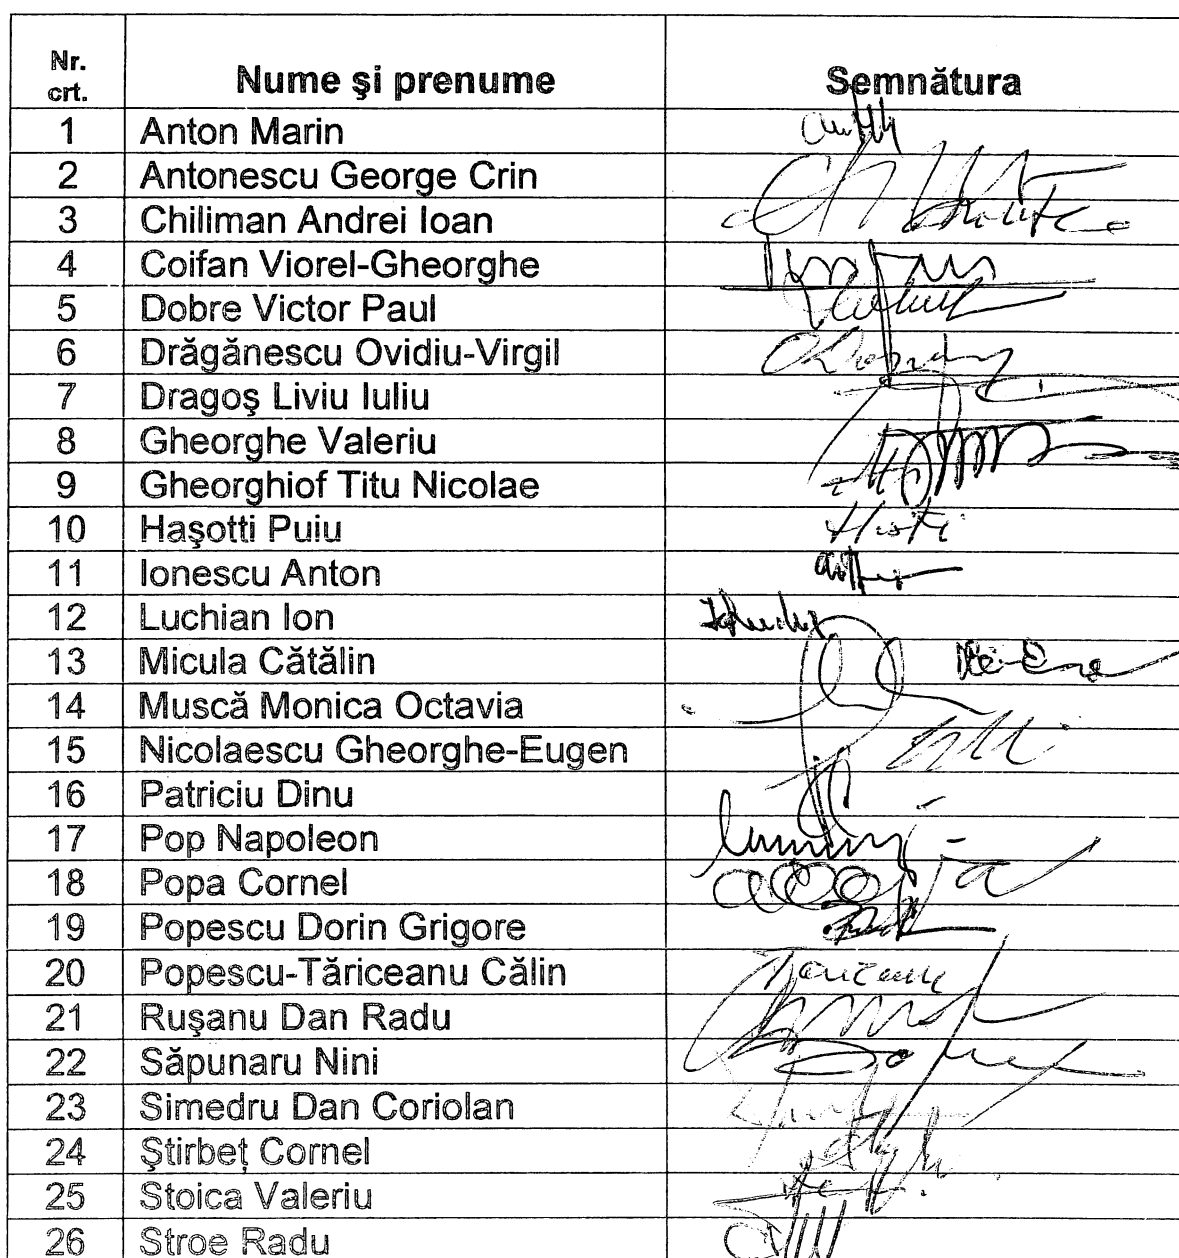 Nr. crt. Nume şi prenume Semnătura
1 Anton Marin
2 Antonescu George Crin
3 Chiliman Andrei Ioan
4 Coifan Viorel-Gheorghe
5 Dobre Victor Paul
6 Drăgănescu Ovidiu-Virgil
7 Dragoş Liviu Iuliu
8 Gheorghe Valeriu
9 Gheorghiof Titu Nicolae
10 Haşotti Puiu
11 Ionescu Anton
12 Luchian Ion
13 Micula Cătălin
14 Muscă Monica Octavia
15 Nicolaescu Gheorghe-Eugen
16 Patriciu Dinu
17 Pop Napoleon
18 Popa Cornel
19 Popescu Dorin Grigore
20 Popescu-Tăriceanu Călin
21 Ruşanu Dan Radu
22 Săpunaru Nini
23 Simedru Dan Coriolan
24 Ştirbeţ Cornel
25 Stoica Valeriu
26 Stroe Radu